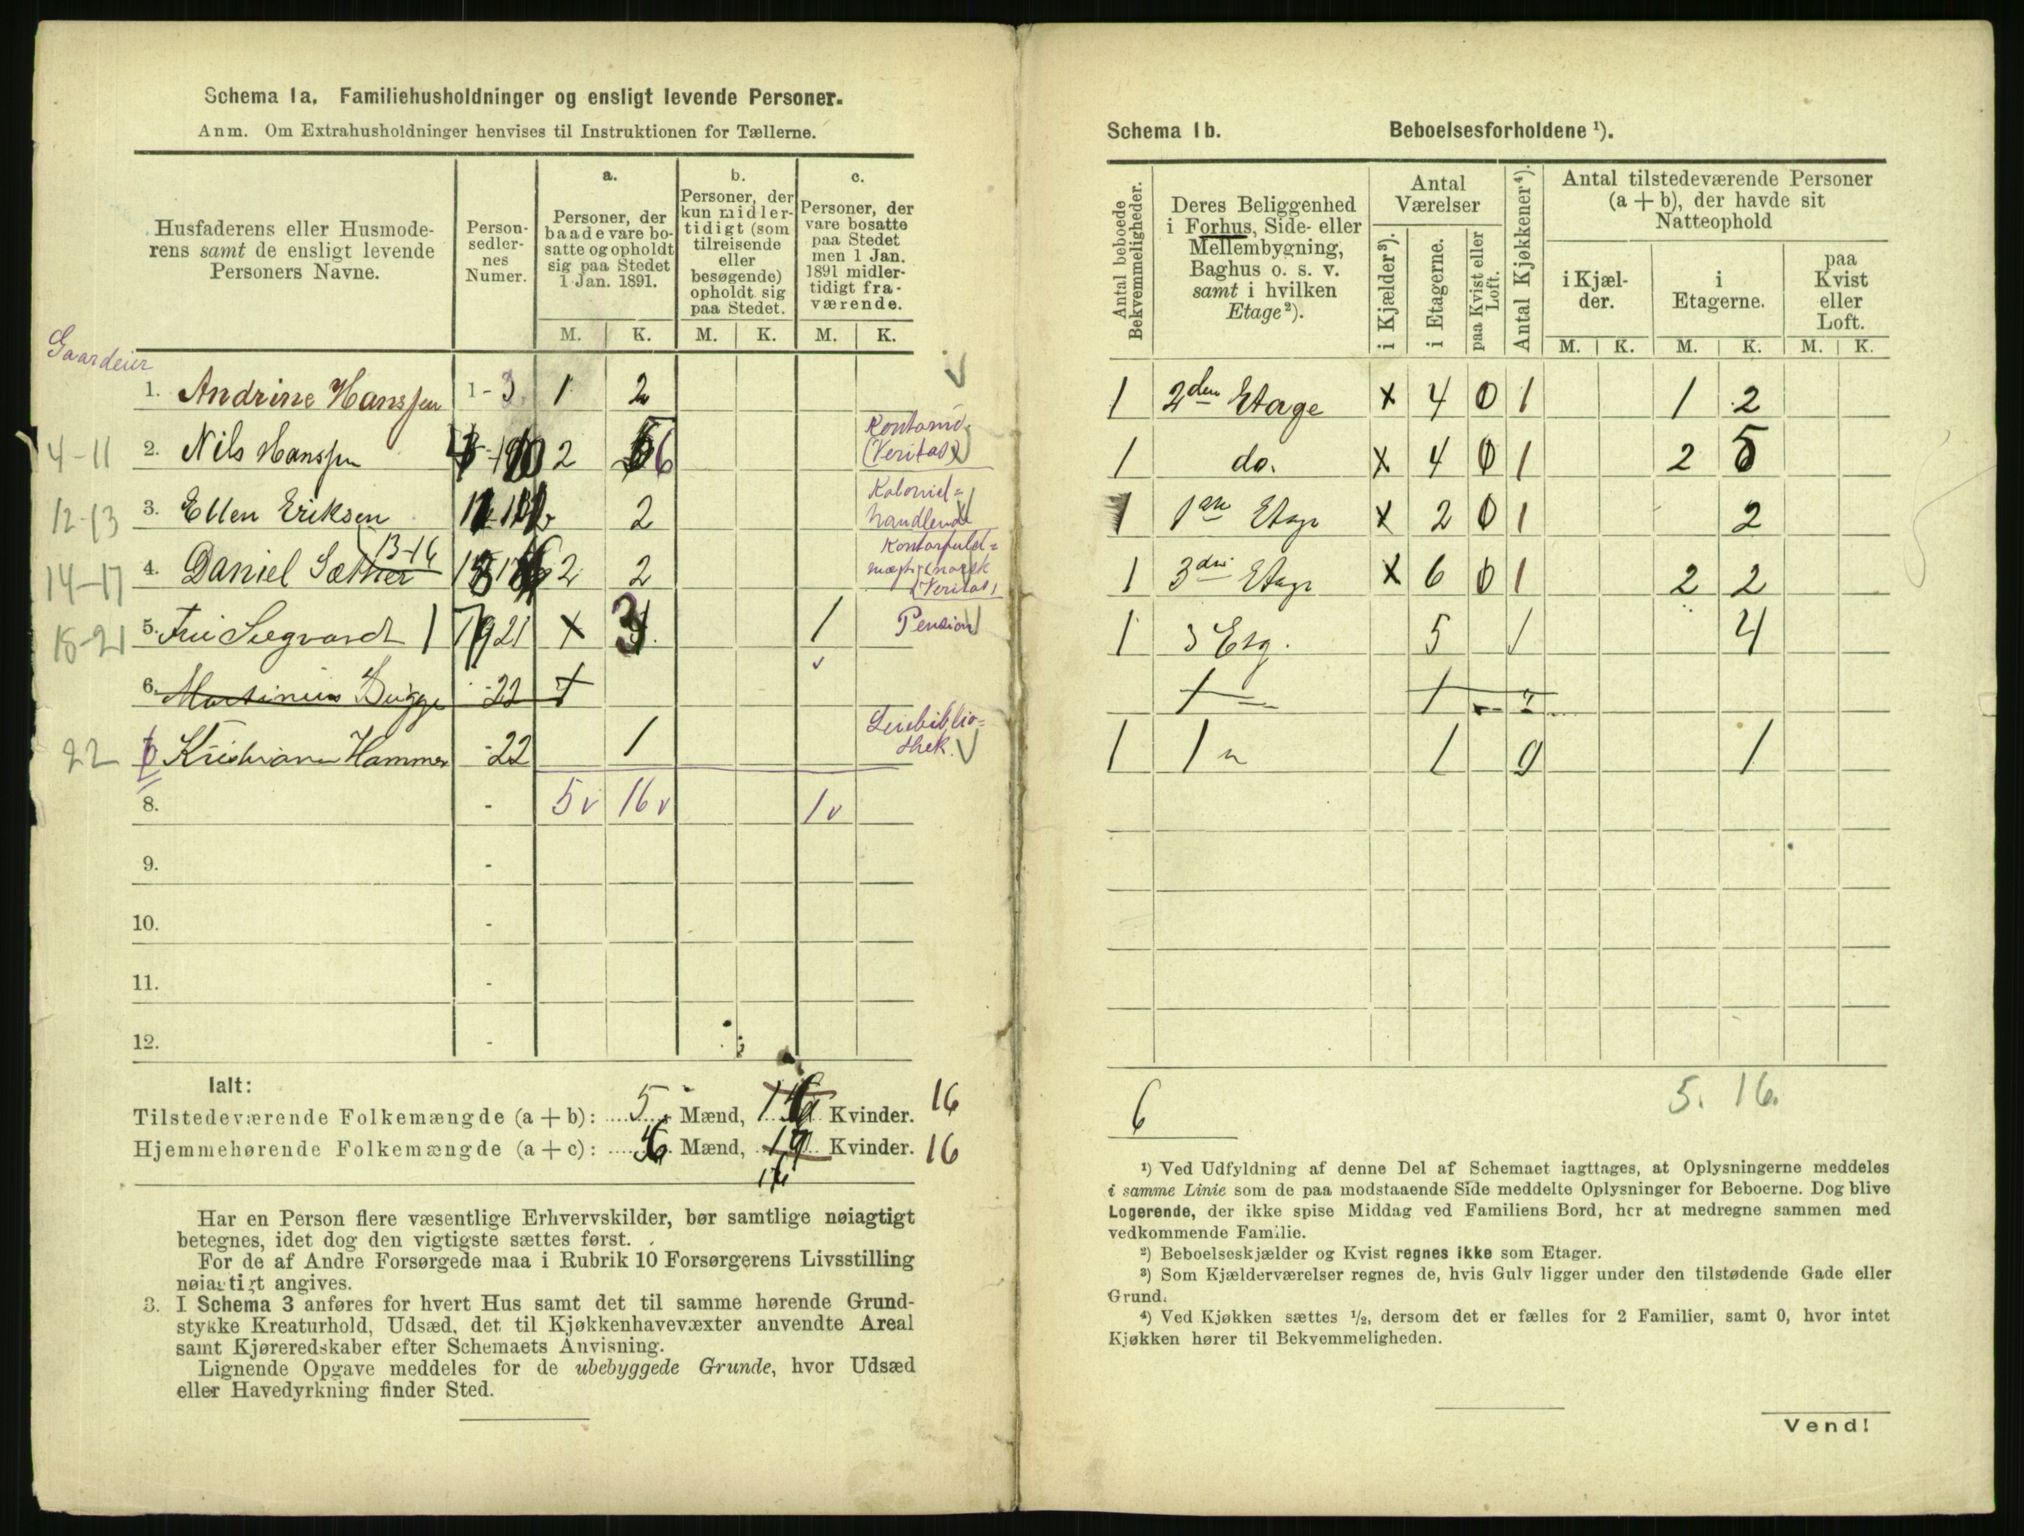 Schema 1a. Familiehusholdninger og ensligt levende Personer.
Anm. Om Extrahusholdninger henvises til Instruktionen for Tællerne.
Husfaderens eller Husmode-
rens samt de ensligt levende
Personers Navne.
Person-
sedler-
nes
Numer.
a.
Personer, der
baade vare bo-
satte og opholdt
sig paa Stedet
1 Jan. 1891.
b.
Personer, der
kun midler-
tidigt (som
tilreisende
eller
besøgende)
opholdt sig
paa Stedet.
c.
Personer, der
vare bosatte
paa Stedet
men 1 Jan.
1891 midler-
tidigt fra-
værende.
M. K. M. K. M. K.
Gaardeier
1. Andrine Hanssen 1-3 1 2
4-11 2. Nils Hanssen 2 6 (Veritas)
12-13 3. Ellen Eriksen 2 Kolonial=
handlende
13-16
14-17 4. Daniel Sæther 2 2
(Veritas)
18-21 5. 21 x 3 1 Pension
6. Martinius Bugge -22 +
22 6 Kristiane Hammer -22 1 Leiebiblio=
thek.
8. - 5 v 16 v 1 v
9. -
10. -
11. -
12. -
Ialt:
Tilstedeværende Folkemængde (a + b): 5 Mænd, Kvinder. 16
Hjemmehørende Folkemængde (a + c): 6 Mænd, Kvinder. 16
16
Har en Person flere væsentlige Erhvervskilder, bør samtlige nøiagtigt
betegnes, idet dog den vigtigste sættes først.
For de af Andre Forsørgede maa i Rubrik 10 Forsørgerens Livsstilling
nøiagtigt angives.
3. I Schema 3 anføres for hvert Hus samt det til samme hørende Grund-
stykke Kreaturhold, Udsæd, det til Kjøkkenhavevæxter anvendte Areal
samt Kjøreredskaber efter Schemaets Anvisning.
Lignende Opgave meddeles for de ubebyggede Grunde, hvor Udsæd
eller Havedyrkning finder Sted.
Schema 1b. Beboelsesforholdene ¹).
Antal beboede
Bekvemmeligheder.
Deres Beliggenhed
i Forhus, Side- eller
Mellembygning,
Baghus o. s. v.
samt i hvilken
Etage²).
Antal
Værelser
i Kjælder³).
i Etagerne.
paa Kvist eller
Loft.
Antal Kjøkkener⁴).
Antal tilstedeværende Personer
(a + b), der havde sit
Natteophold
i Kjæl-
der.
i
Etagerne.
paa
Kvist
eller
Loft.
M. K. M. K. M. K.
1 2den Etage x 4 0 1 1 2
1 do. x 4 0 1 2 5
1 1ste Etage x 2 0 1 2
1 3die Etage x 6 0 1 2 2
1 3 Etg. 5 1 4
1 1 1 0 1
6 5. 16.
¹) Ved Udfyldning af denne Del af Schemaet iagttages, at Oplysningerne meddeles
i samme Linie som de paa modstaaende Side meddelte Oplysninger for Beboerne. Dog blive
Logerende, der ikke spise Middag ved Familiens Bord, her at medregne sammen med
vedkommende Familie.
²) Beboelseskjælder og Kvist regnes ikke som Etager.
³) Som Kjælderværelser regnes de, hvis Gulv ligger under den tilstødende Gade eller
Grund.
⁴) Ved Kjøkken sættes ½, dersom det er fælles for 2 Familier, samt 0, hvor intet
Kjøkken hører til Bekvemmeligheden.
Vend!